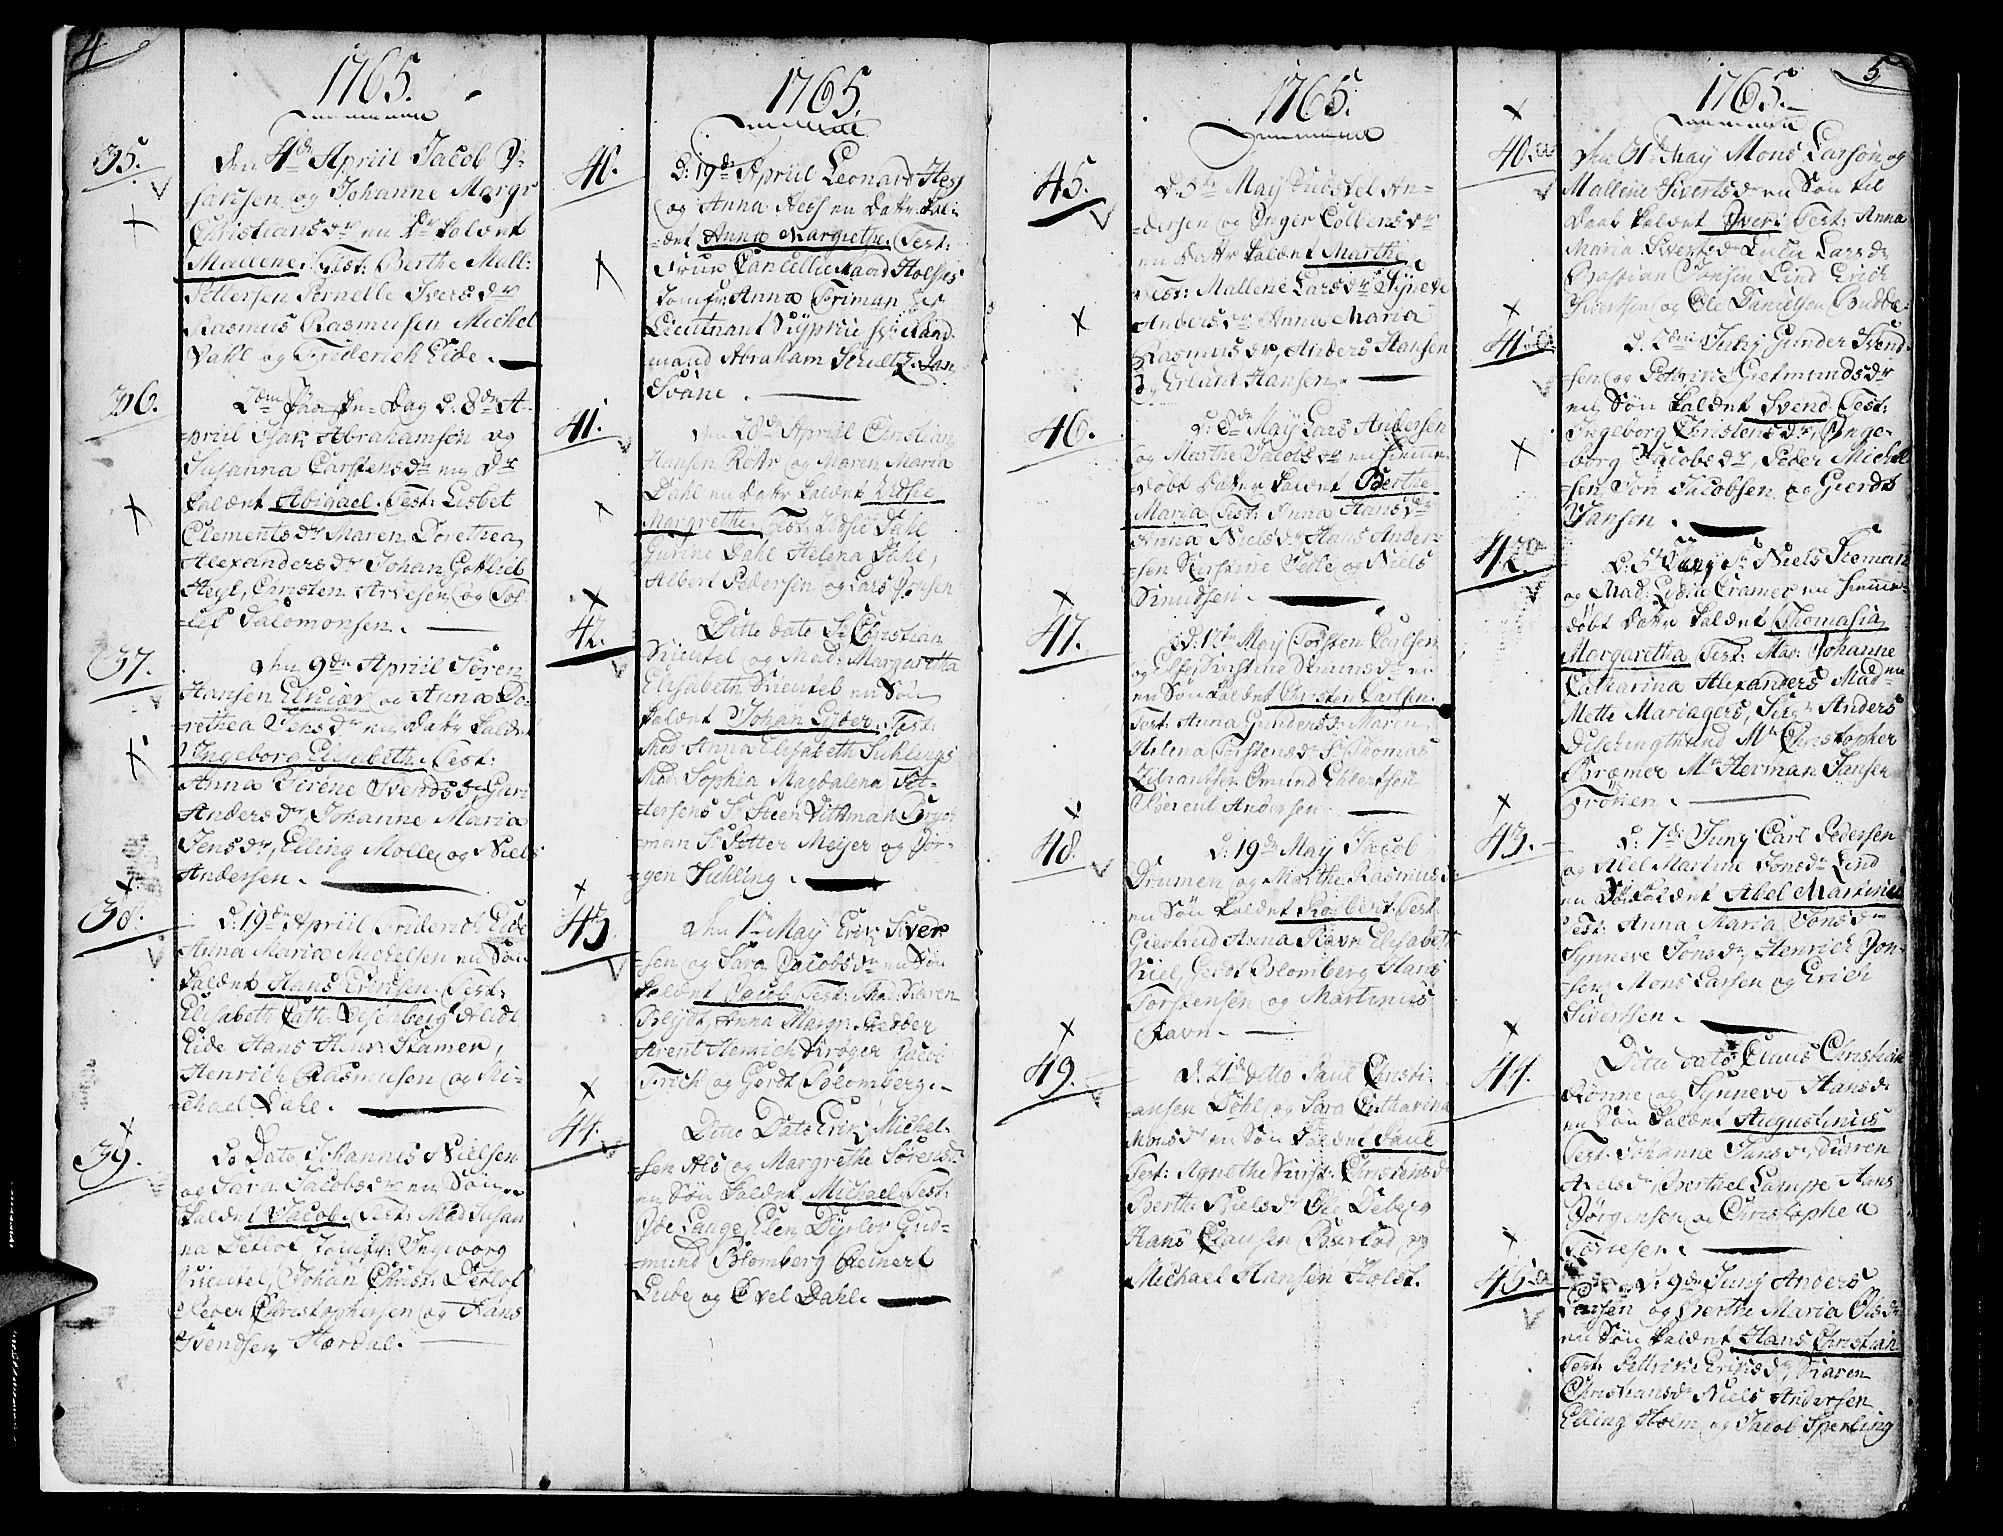 4
1765.
35.
Den 4de Apriil Jacob I-
sachsen og Johanne Margr
Christiansdr en Dr kaldet
Mallene. Test: Berthe Mall:
Pettersen Pernelle Iversdr
Rasmus Rasmusen Michel
Dahl og Friderich Eide.
36.
2den Paaske-Dag d. 8de A-
priil Isak Abrahamsen og
Susanna Carstensdr en Dr
kaldet Abigael. Test: Lisbet
Clementsdr Maren Dorethea
Alexandersdr Johan Gottlieb
Heyl, Christen Arvesen og Jos-
Salomonsen.
37.
den 9de Apriil Sören
Hansen og Anna Do-
rethea Jensdr en Dattr kaldet
Ingeborg Elisabeth. Test:
Anna Sirene Svendsdr Guri
Andersdr, Johanne Maria
Jensdr, Elling Molle og Niels
Andersen.
38.
d. 19de Apriil Friderich Eide
Anna Maria Michelsen en Sön
kaldet Hans Erichsen. Test:
Elisabeth Cath: Alida
Eide Hans Henr: Stamer,
Henrich Rasmusen og Mi-
chael Dahl.
39.
Do Dato Johannes Nielsen
og Sara Jacobsdr en Sön
kaldet Jacob. Test: Mad Susan
na Detlof Jomfr: Ingeborg
Krückel, Johan Christ: Detlof
Peder Christophersen og Hans
Svendsen Hordal.
1765.
40.
d: 19de Apriil Leonard Hess
og Anna Hess en Dattr kal-
det Anna Margrethe. Test:
Fruue Cancellieraad Holses
Jomfr: Anna Friman Hr
Lieutnant Hr: Kand-
mand Abraham Schultz. Jan
Svane.
41.
den 20de Apriil Christian
Hansen Röttr og Maren Maria
Dahl en Dattr kaldet Zidsie
Margrethe. Test: Zidsie Dahl
Gurine Dahl Helena Dahl,
Albert Pedersen og Lars Jensen
42.
Ditto dato Sr Christian
Krückel og Mad: Margaretha
Elisabeth Krückel en Sön
kaldet Johan Lyder. Test:
Mad: Anna Elisabeth Suhlings
Mad: Sophia Magdalena Pet-
tersens Sr Steen Vithman
man Sr Petter Meyer og Jör-
gen Suhling.
43.
den 1ste May Erik Siver
sen og Sara Jacobsdr en Sön
kaldet Jacob. Test: Mad: Karen
Bleydt, Anna Margr: Fedder
Arent Henrich Kröger Jacob
Frich og Gerdt Blomberg.
44.
Ditto Dato Erik Michel-
sen Als og Margrethe Sörensd:
en Sön kaldet Michael. Test:
Ode Lange, Elen Dyrlov Gud-
mund Blomberg Reinert
Lude og Evel Dahl.
1765.
45.
d. 5te May An-
dersen og Inger Colbensdr
en Dattr kaldet Marthe
Test: Mallene Larsdr Syneve
Andersdr Anna Maria
Rasmusdr, Anders Hansen
og Erland Hansen.
46.
d: 8de May Lars Andersen
og Marthe Jacobsdr en hiemme-
döbt Datter kaldet Berthe
Maria Test: Anna Hansdr
Anna Nielsdr Hans Ander-
sen Kirstine Velle og Niels
Knudsen.
47.
d: 12te May Torsten
og Christine en
en Sön kaldet Christen Carlsen.
Test: Anna Gundersdr Maren
Helena Torstensdr Sr Thomas
Omund Ehlertsen
Berent Andersen
48.
d: 19de May Jacob
Drumen og Marthe Rasmusd:
en Sön kaldet Robbert. Test:
Giertrud Anna Ravn Elisabet
Kiel, Gerdt Blomberg Hans
Torstensen og Martinus
Ravn.
49.
d. 21de ditto Paul Christi-
ansen Döhl og Sara Catharina
Monsdr en Sön kaldet Paul
Test: Agnethe Kirst: Christensd
Berthe Nielsdr Ole Deberg
Hans Clausen Burlod og
Michael Hansen Holst.
5
1765.
40.a
den 31te May Mons Larsön og
Mallene Sivertsdr en Sön til
Daab kaldet Iver. Test: Anna
Maria Sivertsdr Lucie Larsdr
Bastian Jensen Lind Erich
Sivertsen og Ole Danielsen Budde.
41.a
d. 2den Juny Gunder Svend-
sen og Gietmundsdr
en Sön kaldet Svend. Test:
Ingeborg Christensdr, Inge-
borg Jacobsdr, Peder Michel
sen Jon Jacobsen og Gierdt
Jansen.
42.a
d. 5te Juny Sr Niels Steman
og Mad: Lydia Cramer en hiemme-
döbt Dattr kaldet Thomasia
Margaretha Test: Mad: Johanne
Catharina Alexanders Mad
Mette Mariagers, Sigr Anders
Mr Christopher
Bræmer Mr Herman Jansen
Frönen.
43.
d: 7de Juny Carl Pedersen
og Abel Martine Jonsdr Lind
en Dr kaldet Abel Martinus
Test: Anna Maria Jonsdr
Synneve Jonsdr, Henrich Jon-
sen, Mons Larsen og Erich
Sivertsen.
44.
Ditto dato Claus Christian
Rönne og Synneve Hansdr
en Sön kaldet Augustinus
Test: Johanne Jansdr, Karen
Axelsdr, Berthel Lampe Hans
Börgensen og Christopher
Torresen.
45.a
d. 9de Juny Anders
Larsen og Berthe Maria Olsdr
en Sön kaldet Hans Christian
Test: Petterine Eriksdr, Karen
Christiansdr Niels Andersen
Elling Holm og Jacob Sperling